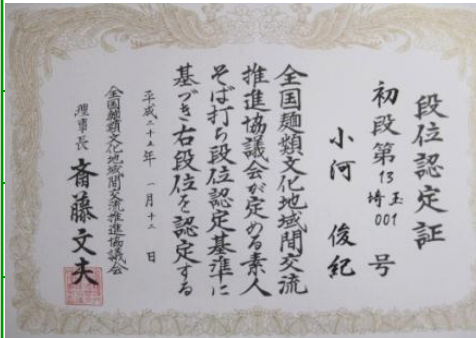 段位認定証
初段第13埼玉001号
小河 俊紀
全国麺類文化地域間交流
推進協議会が定める素人
そば打ち段位認定基準に
基づき右段位を認定する
平成二十五年 一月十二 日
全国麺類文化地域間交流推進協議会
理事長 斎藤文夫